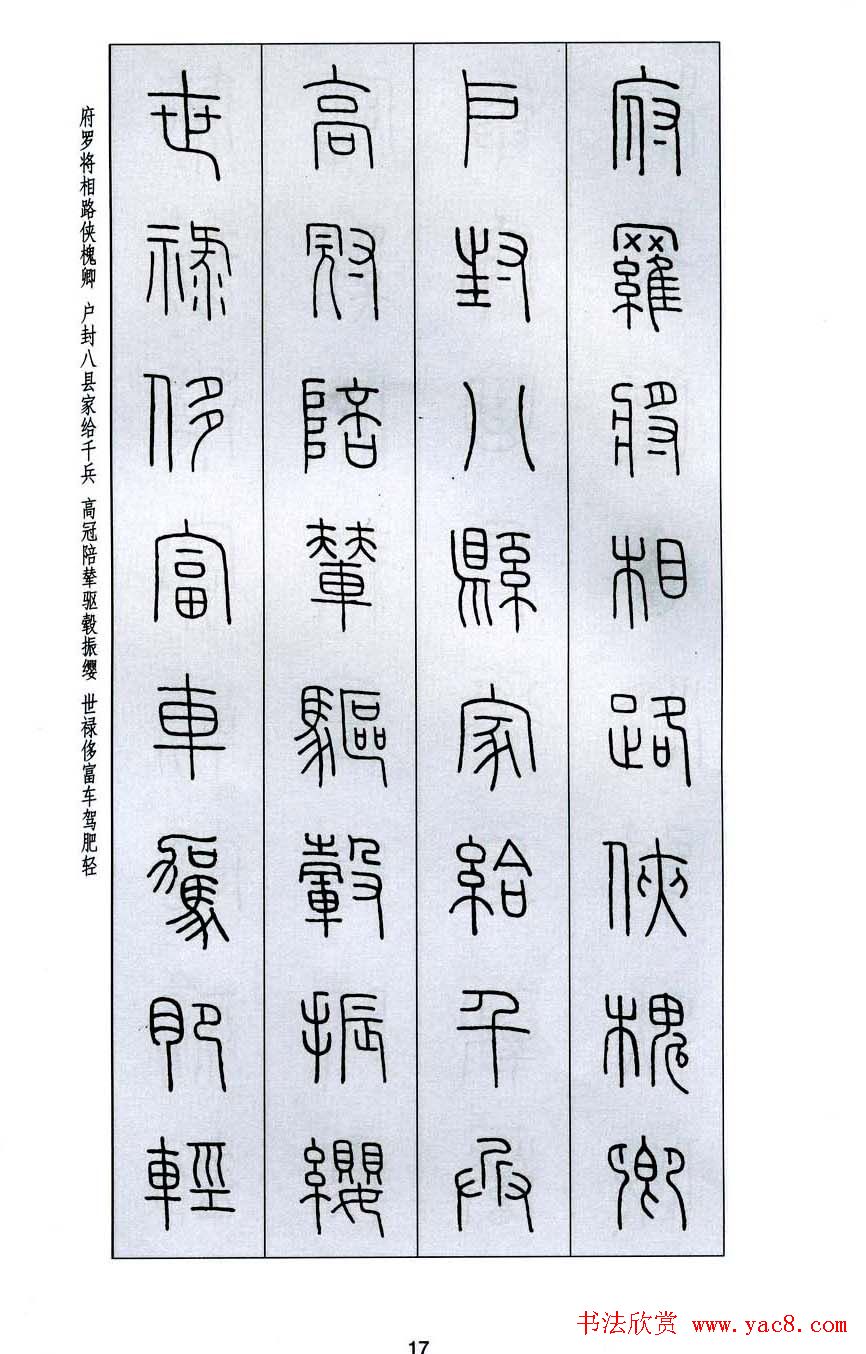 府羅將相路俠槐卿
戶封八縣家給千兵
高冠陪輦驅轂振纓
世祿侈富車駕肥輕
府罗将相路侠槐卿 户封八县家给千兵 高冠陪辇驱毂振缨 世禄侈富车驾肥轻
17
书法欣赏 www.yac8.com